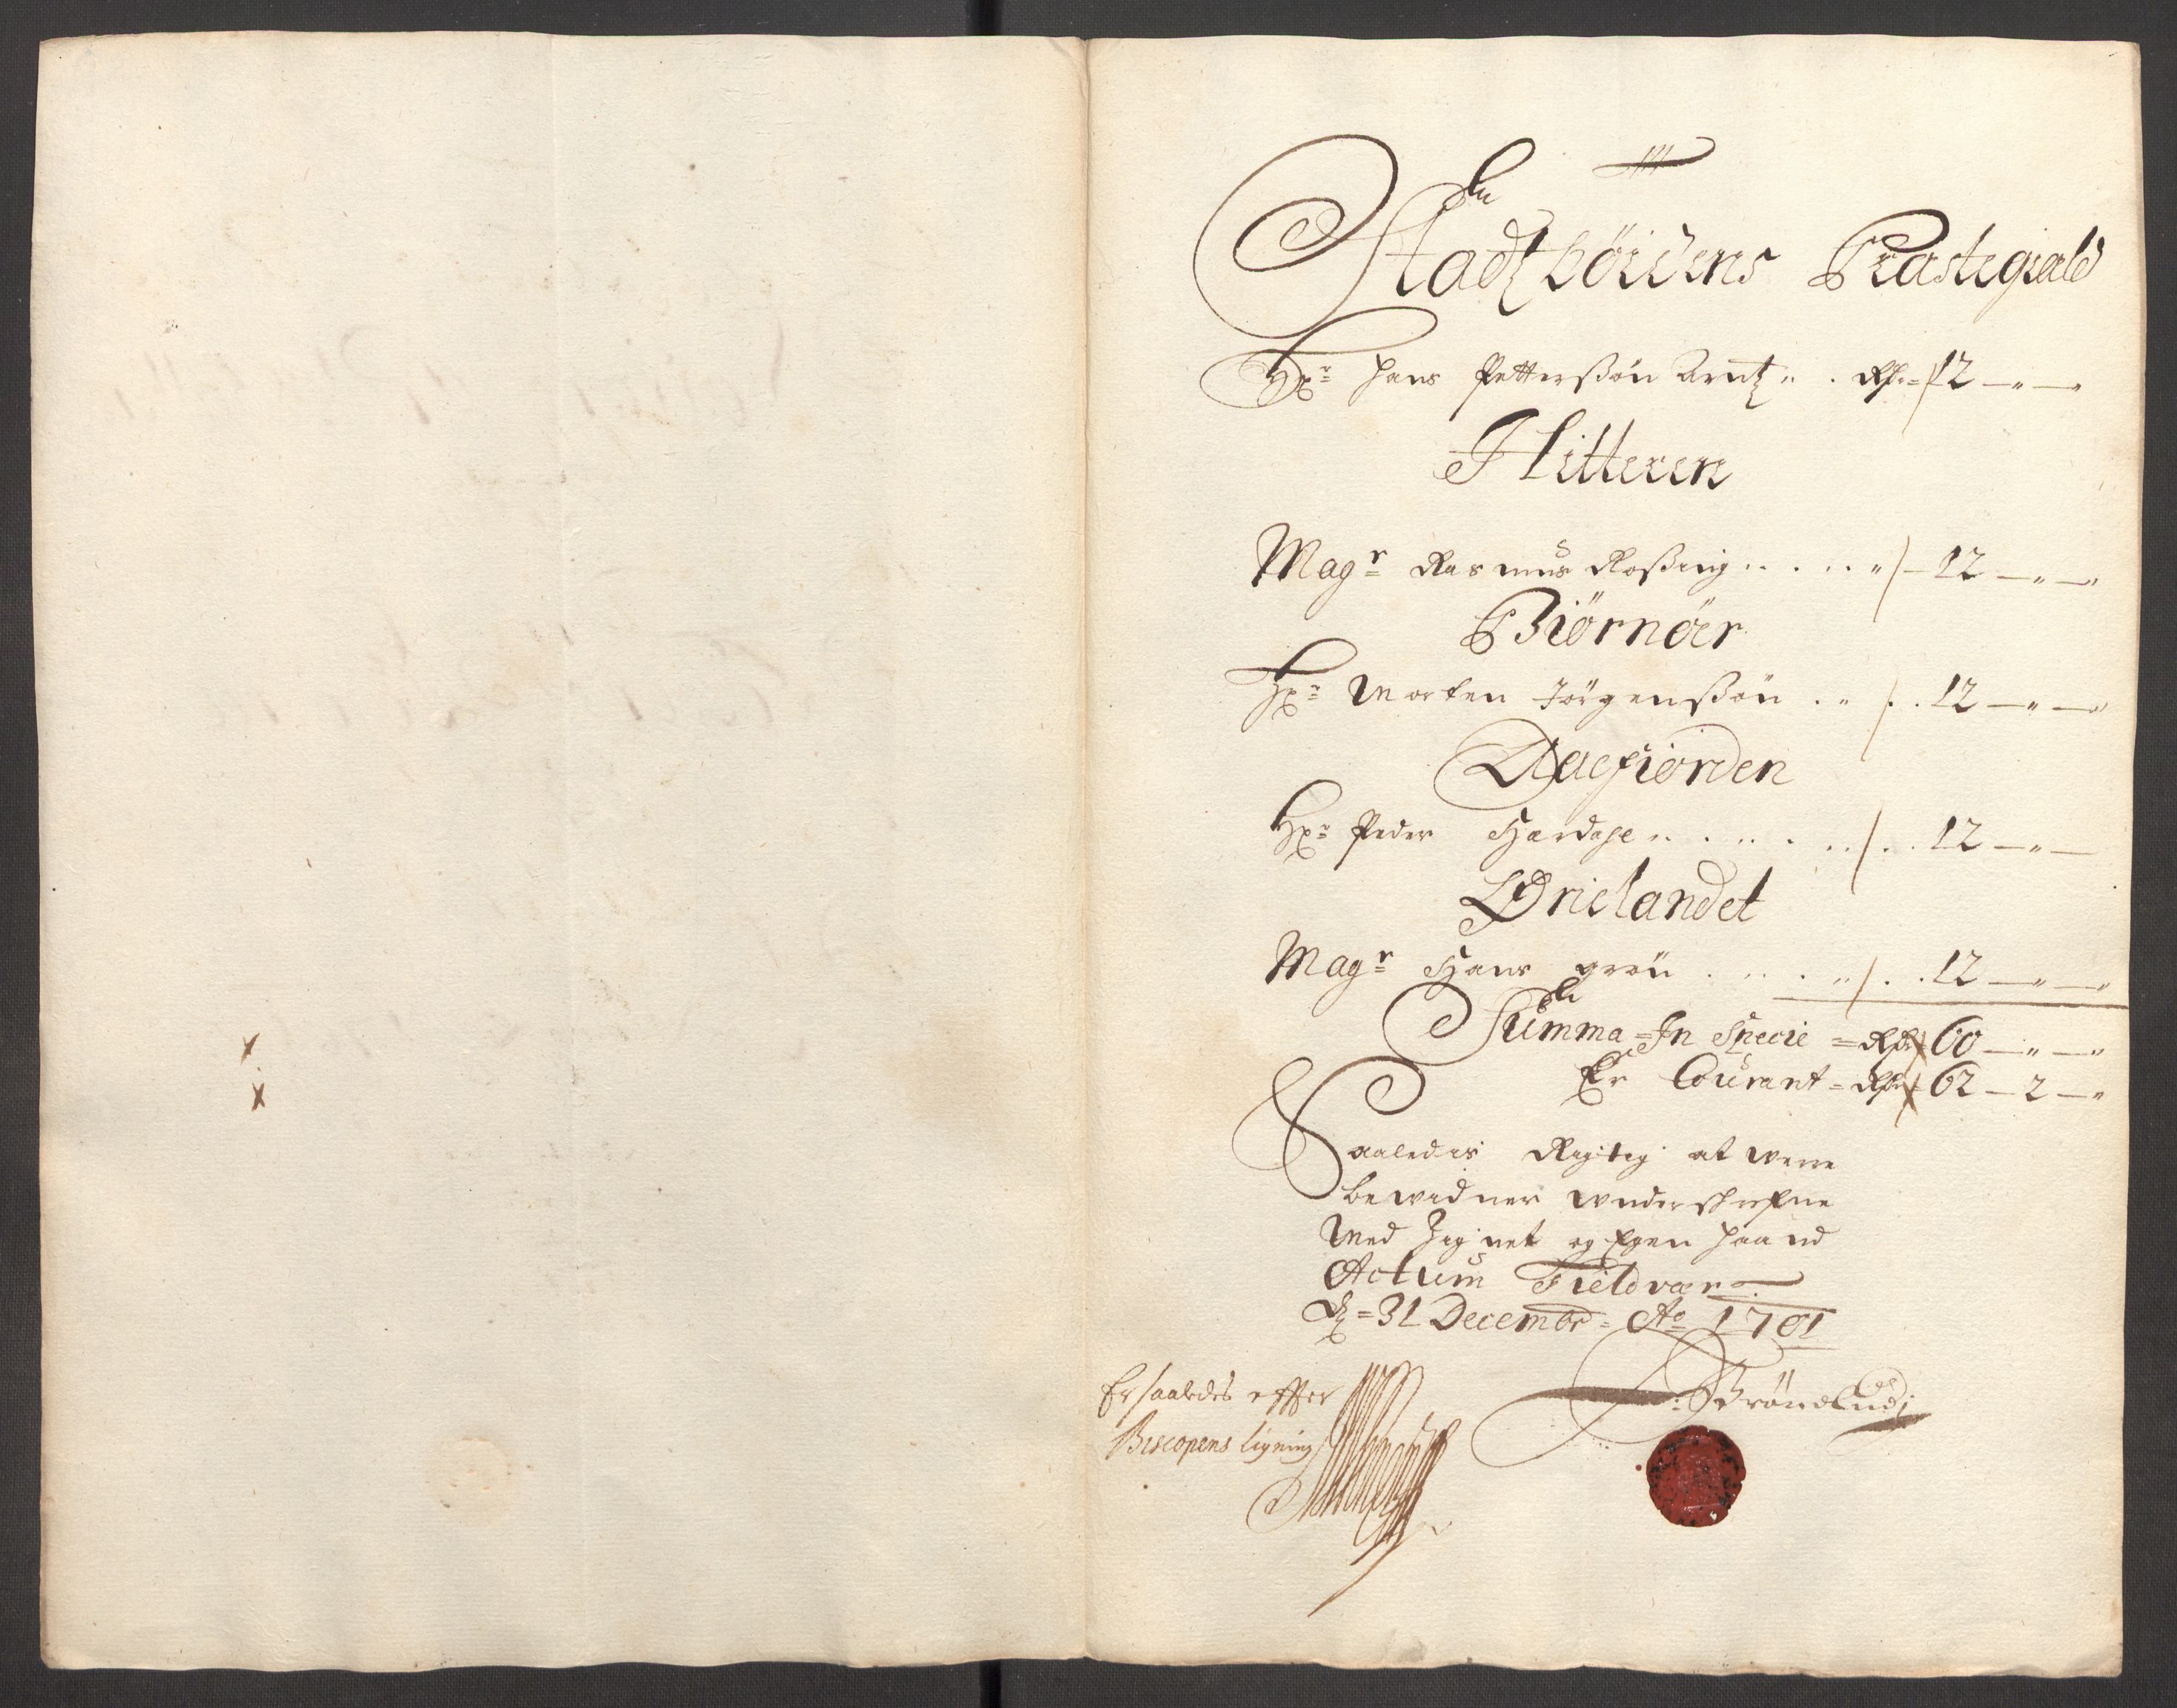 Stadtzbøidens Præstegiæld
Hr: Hans Petterßøn Arntz .. . Rdr: 12 – " – "
Hitteren
Magr: Rasmus Roßing .. . .. " – 12 – " – "
Biørnøer
Hr: Morten Jørgenßøn . .. . . 12 – " – "
Aaefiorden
Hr: Peder Hardahl .. . .. . .. . . 12 – " –
Ørielandet
Magr: Hans grøn . .. . .. . . 12 – " – "
Summa = In Specie = Rdr 60 – " – "
Er Courant = Rdr 62 – 2 – "
Saaledis Rigtig at were
bewidner underschrefne
Med Zignet og Egen Haand
Actum Fieldvær
D: = 31 Decembr: Ao 1701
Er saaledes effter
Biscopens ligning